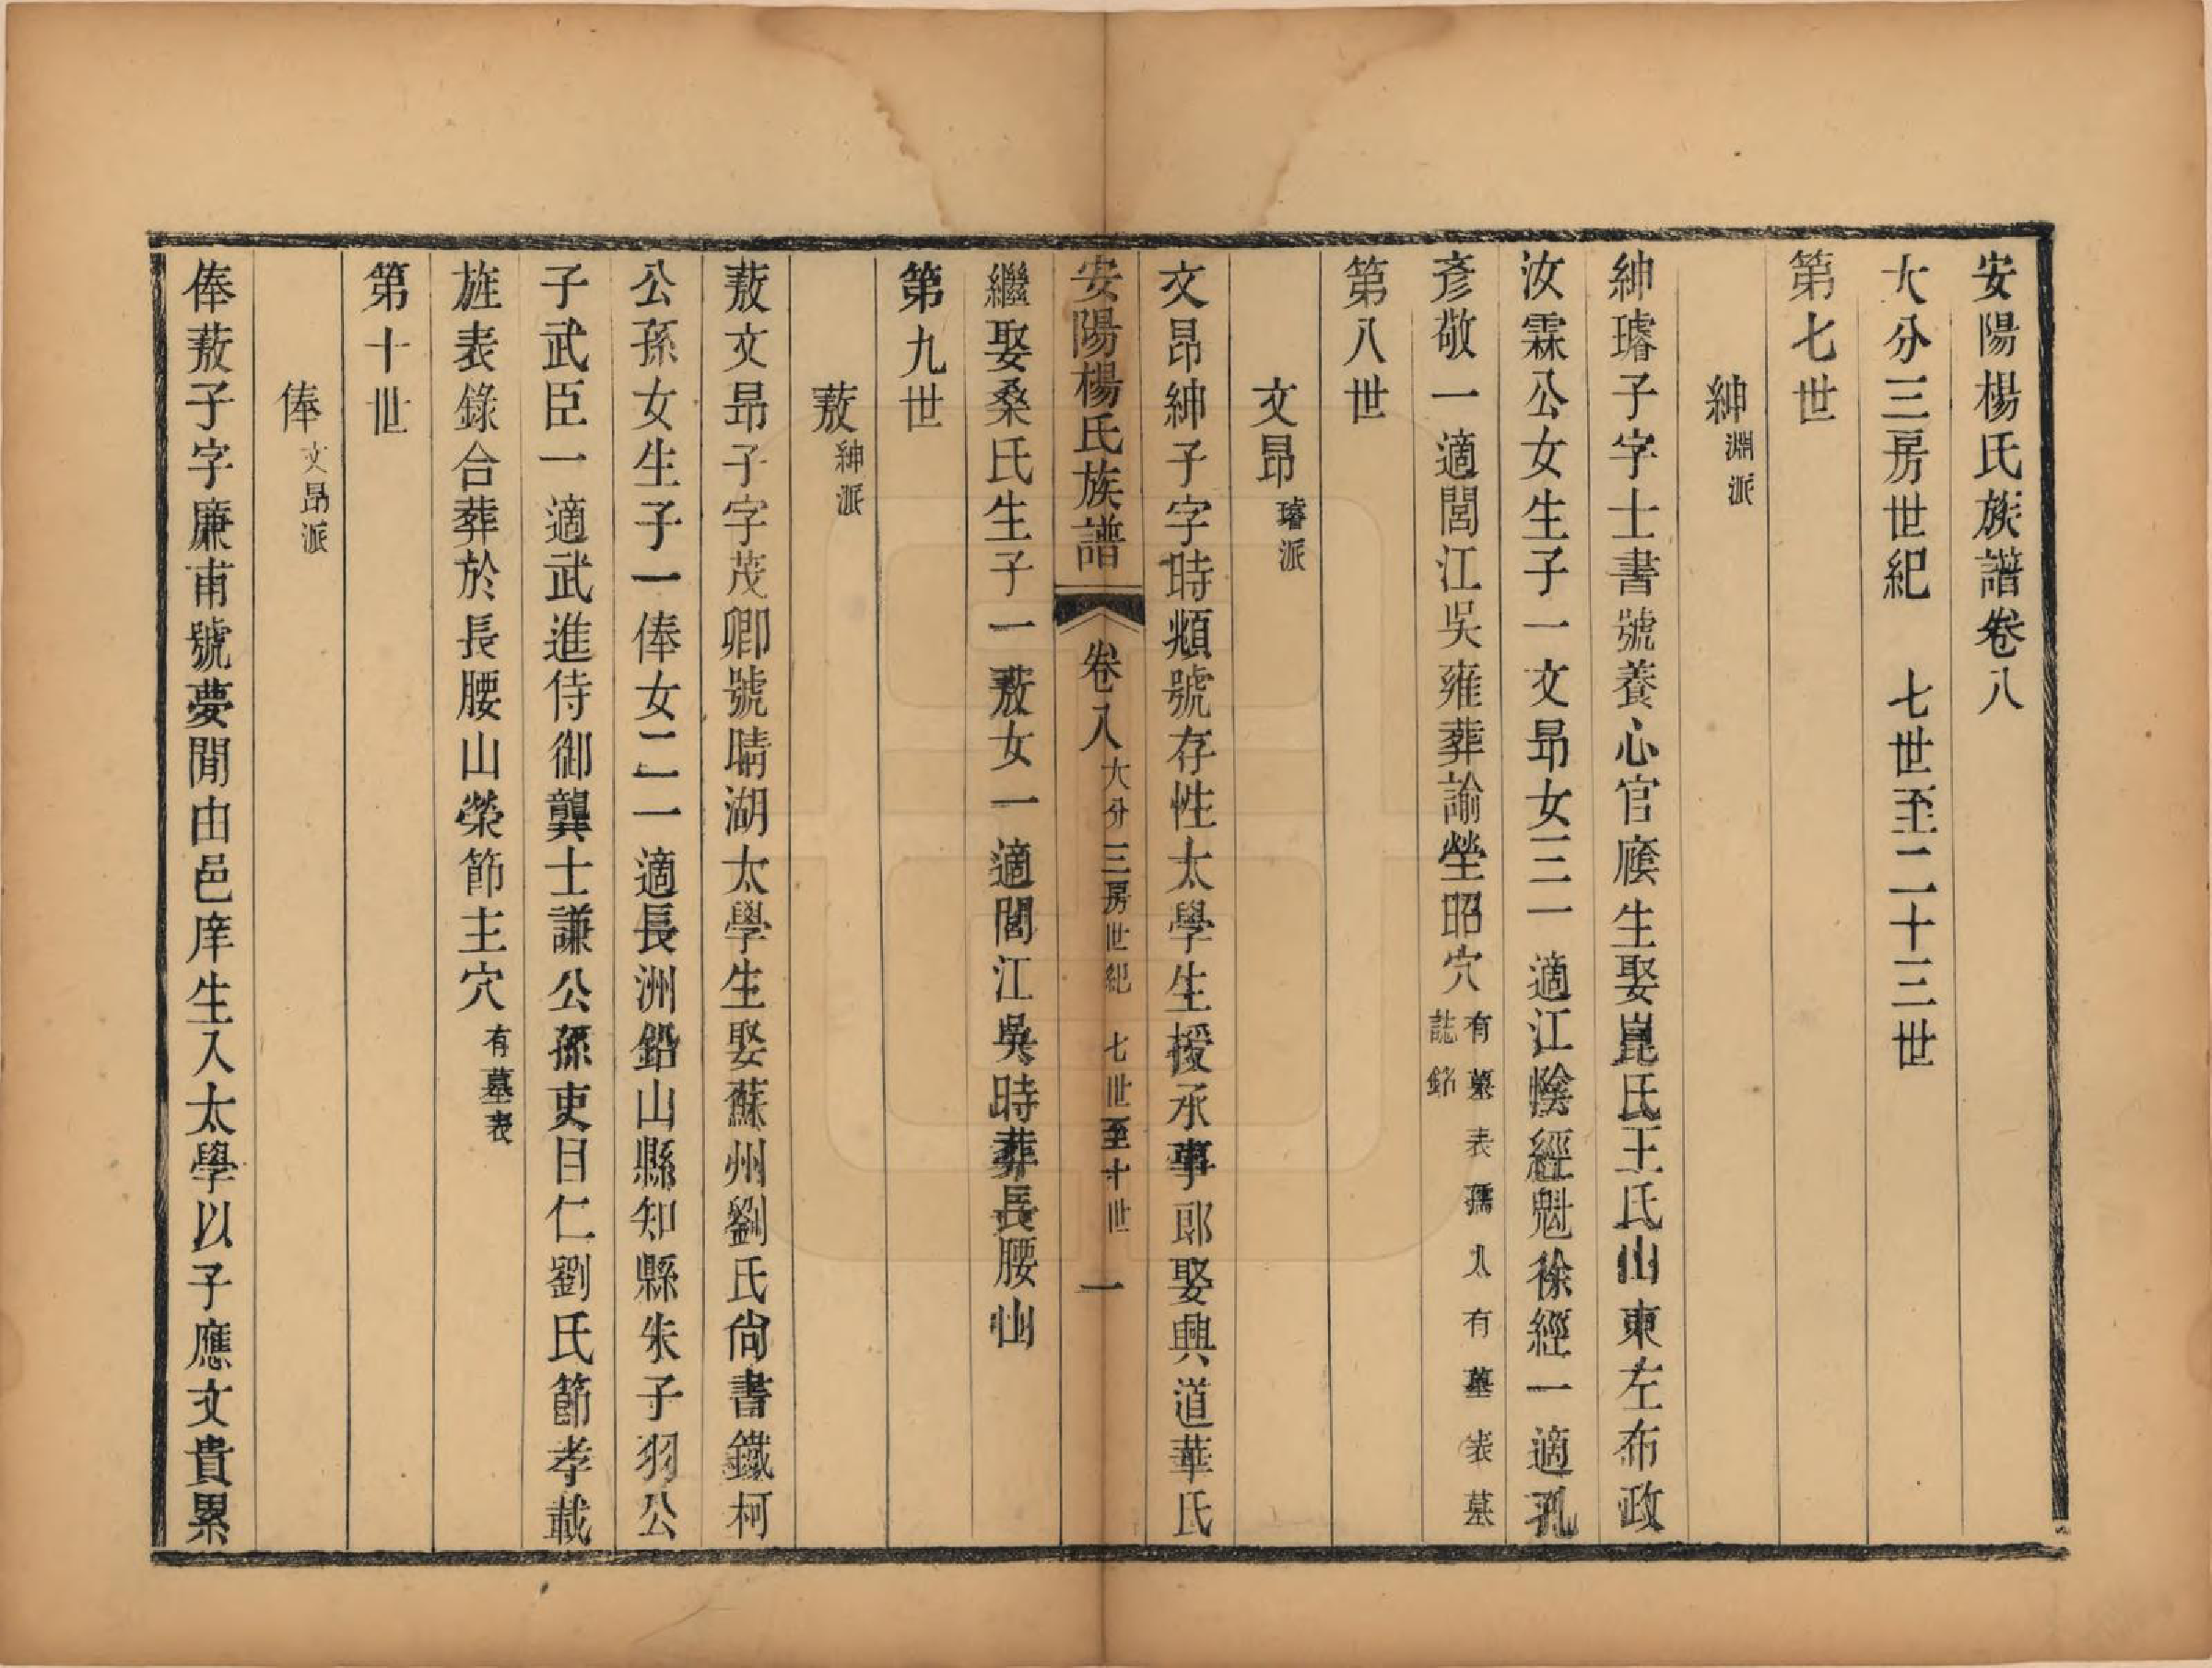 安陽楊氏族譜卷八
大分三房世紀　七世至二十三世
第七世
紳淵派
紳璿子字士書號養心官廕生娶崑氏王氏山東左布政
汝霖公女生子一文昂女三一適江陰經魁徐經一適孔
彥敬一適閭江吳雍葬諭塋昭穴有墓表孺人有墓表墓
誌銘
第八世
文昂璿派
文昂紳子字時頫號存性太學生授承事郎娶興道華氏
安陽楊氏族譜　卷八大分三房世紀　七世至十世　一
繼娶桑氏生子一菽女一適閭江吳時葬長腰山
第九世
菽紳派
菽文昂子字茂卿號晴湖太學生娶蘇州劉氏尚書鐵柯
公孫女生子一俸女二一適長洲鉛山縣知縣朱子羽公
子武臣一適武進侍御龔士謙公孫吏目仁劉氏節孝載
旌表錄合葬於長腰山榮節主穴有墓表
第十世
俸文昂派
俸菽子字廉甫號夢閒由邑庠生入太學以子應文貴累